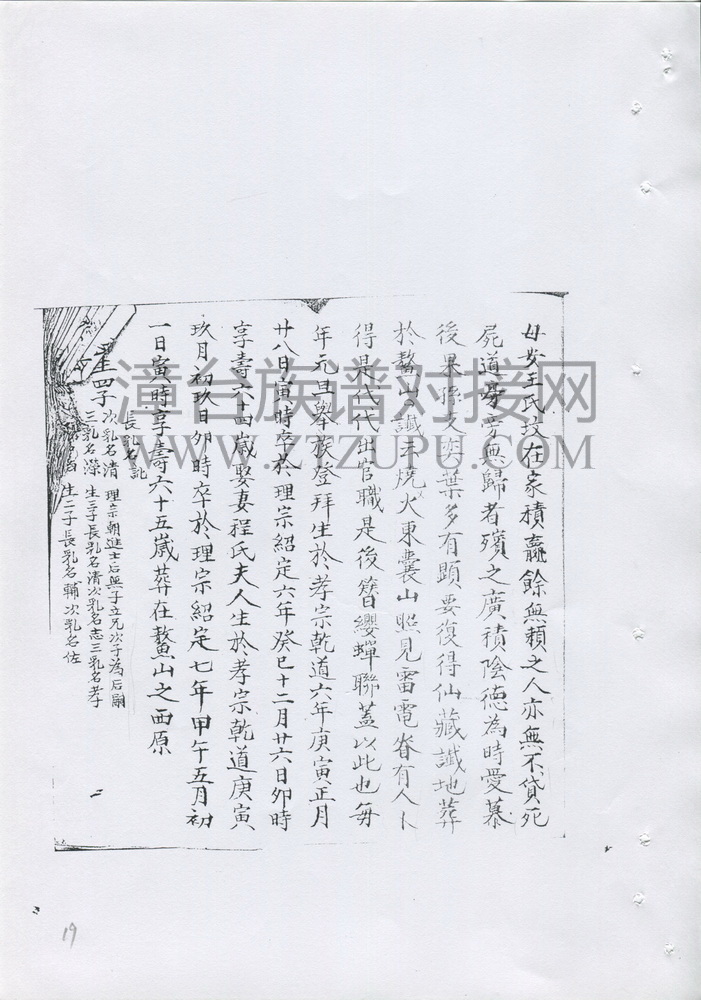 母安王氏坟在家積贏餘無賴之人亦無不貸死
屍道旁無歸者殯之廣積陰德為時愛慕
後果孫支奕葉多有顕要復得仙藏讖地葬
於鰲山讖云燒火東囊山照見雷電眷有人卜
得是代代出官職是後簪纓蟬聯蓋以此也每
年元旦舉族登拜生於孝宗乾道六年庚寅正月
廿八日寅時卒於理宗紹定六年癸巳十二月廿六日卯時
享壽六十四歲娶妻程氏夫人生於孝宗乾道庚寅
玖月初玖日卯時卒於理宗紹定七年甲午五月初
一日寅時享壽六十五歲葬在鰲山之西原
生四子
長乳名記
次乳名清 理宗朝進士后無子立兄次子為后嗣
三乳名深 生三子長乳名清次乳名志三乳名孝
生二子長乳名輔次乳名佐
漳台族谱对接网
WWW.ZTZUPU.COM
19